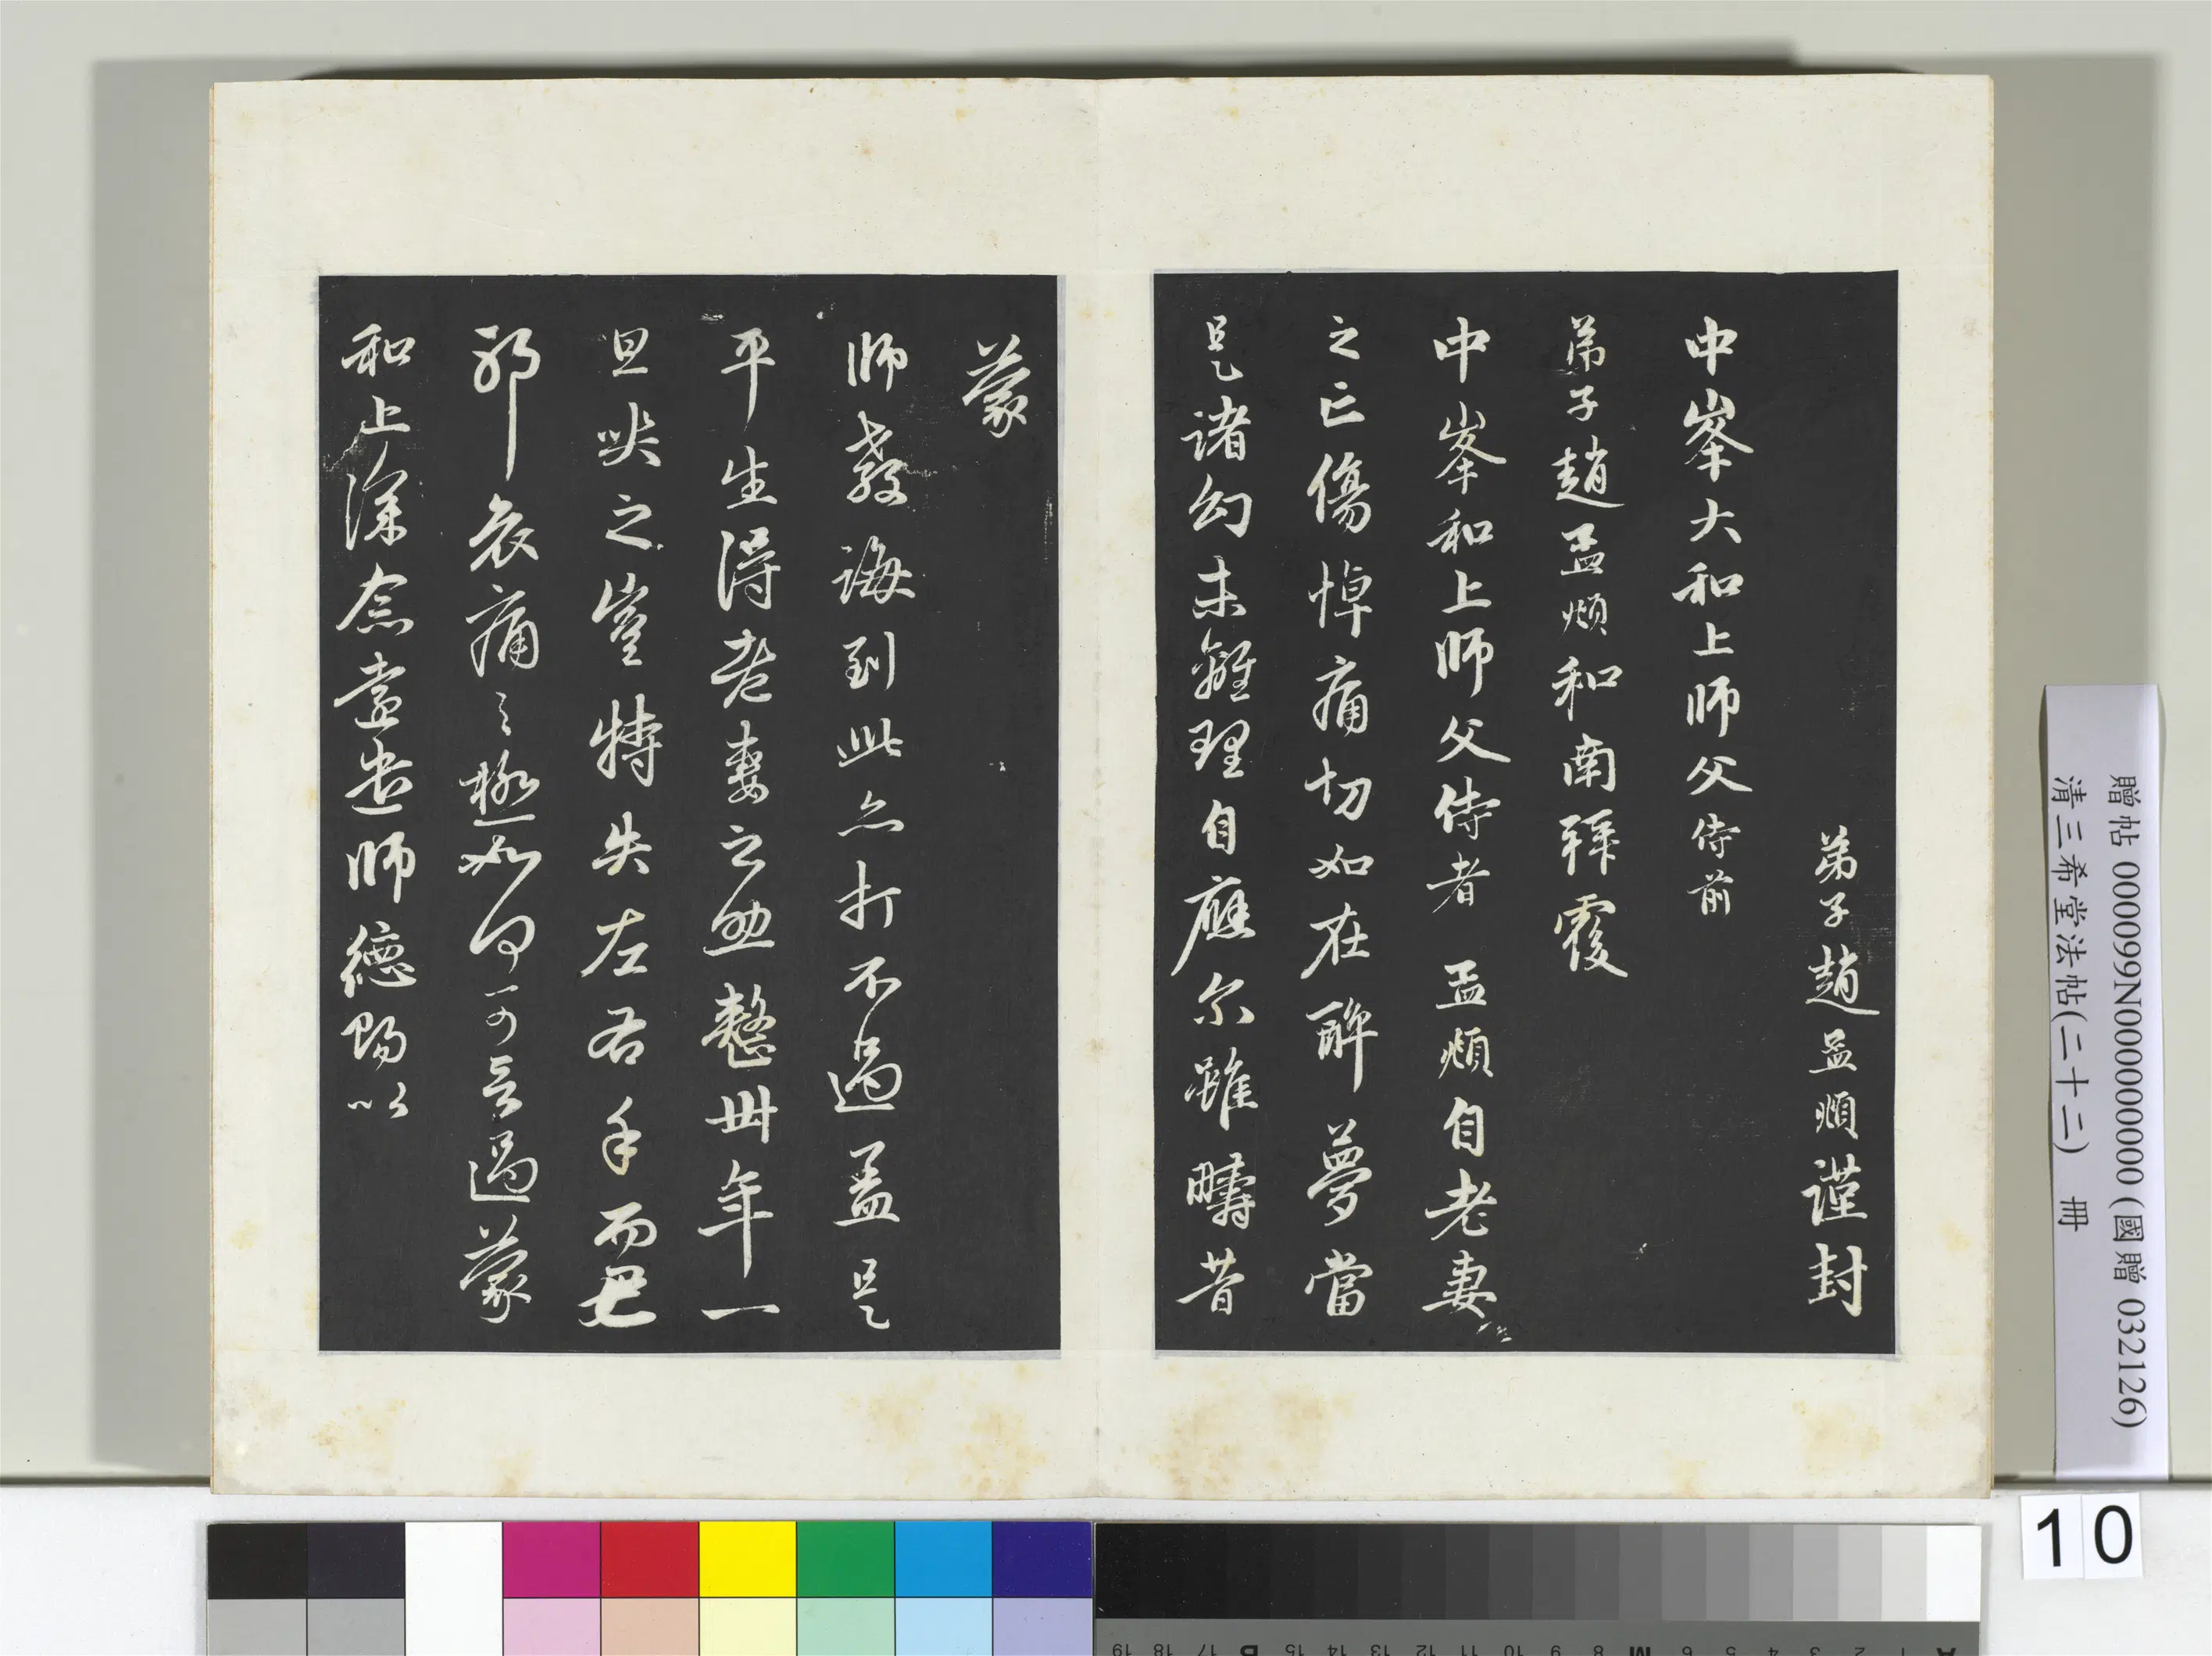 弟子趙孟頫謹封
中峯大和上師父侍前
弟子趙孟頫和南拜覆
中峯和上師父侍者 孟頫自老妻
之亡傷悼痛切如在醉夢當
是諸幻未離理自應尔雖疇昔
蒙
師教誨到此亦打不過盖是
平生得老妻之助整卅年一
旦哭之豈特失左右手而已
耶哀痛之極如何可言過蒙
和上深念遠遣師德賜以
贈帖 000099N000000000 (國贈 032126)
清三希堂法帖(二十二) 冊
10